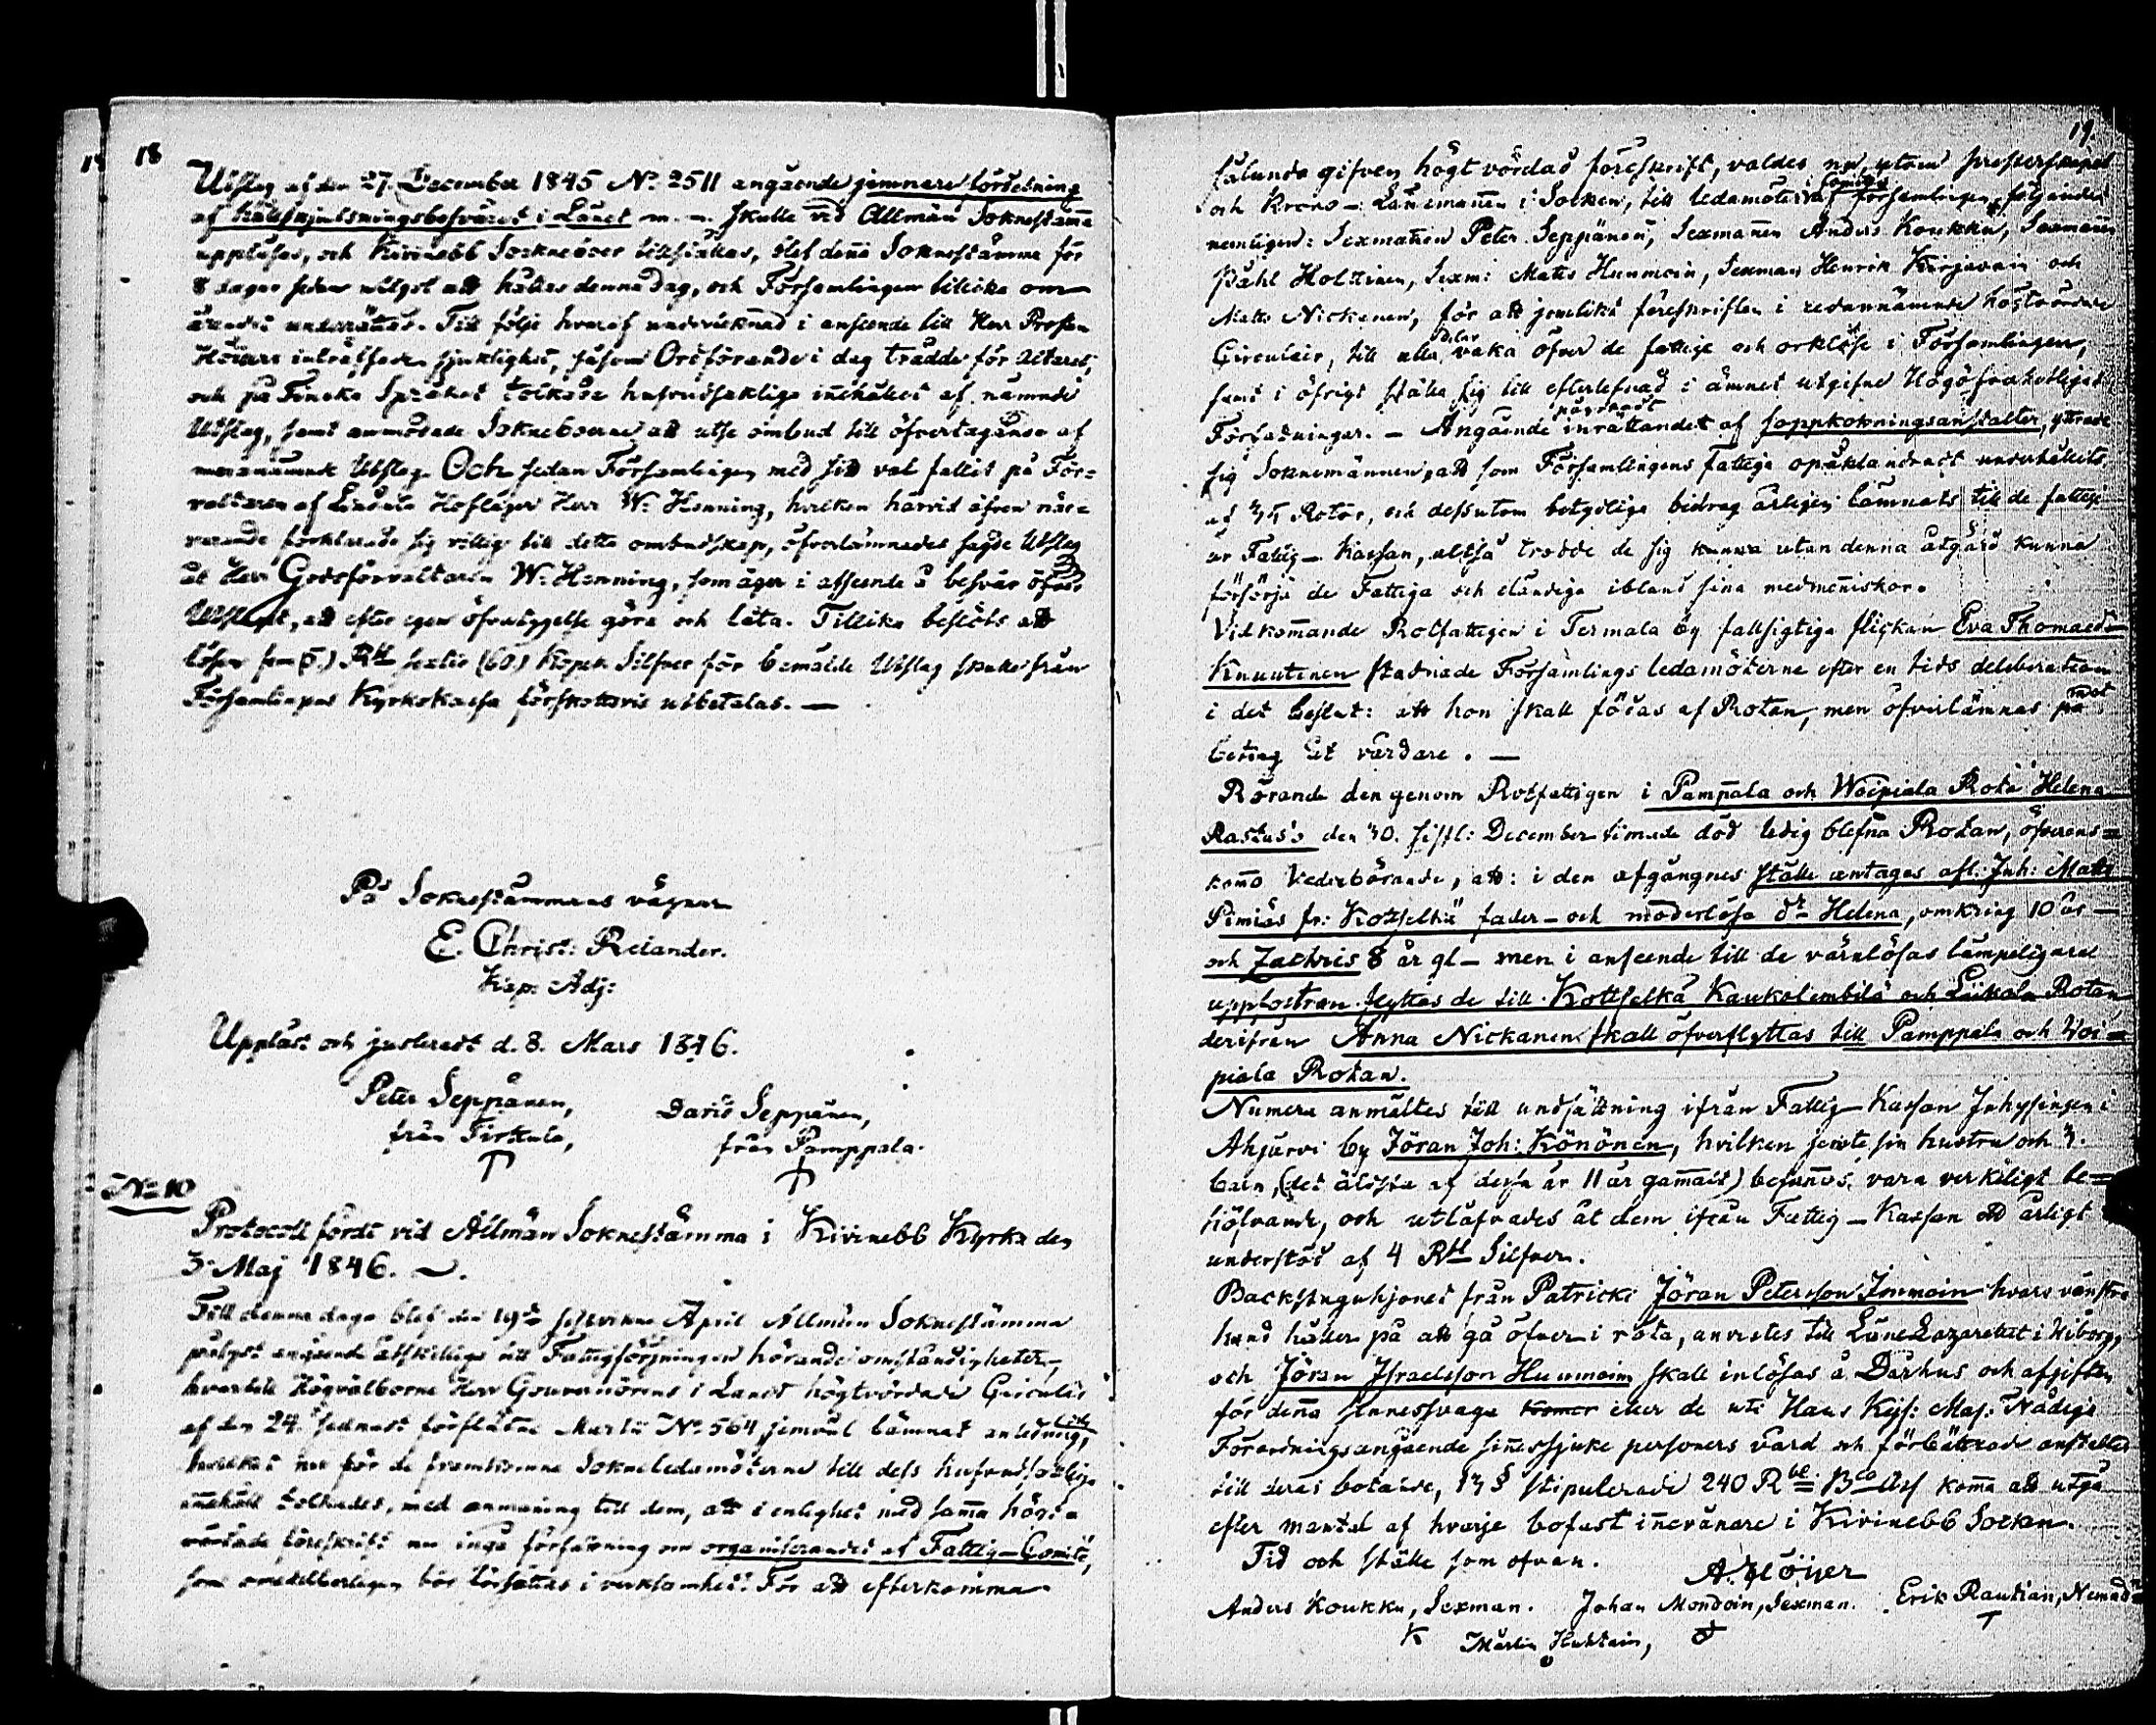 18
Utslag af den 27. December 1845 No. 2511 angående jemnare fördelning
af hållskjutsningsbesväret i Länet m. m. skulle vid Allmän Soknestämma
uppläsas, och Kivinebb Sockneboer tillställas, blef denna Soknestämma för
8 dagar sedan utlyst att hållas denna dag, och Församlingen tillika om
ärendet underrättad. Till följe hvaraf undertecknad i anseende till Herr Prosten
Höijers inträffade sjuklighet, såsom Ordförande i dag trädde för altaret,
och på Finska Språket tolkade hufvudsakliga innehållet af nämnde
Utslag, samt anmodade Sokneboerne att utse ombud till öfvertagande af
meranämnde Utslag. Och sedan Församlingen med sitt val fallit på För=
valtaren af Lindula Hofläger Herr W: Henning, hvilken härvid äfven när=
varande förklarade sig villig till detta ombudskap, öfverlämnades sagde Utslag
åt Herr Godsförvaltaren W: Henning, som äger i afseende å besvär öfver
Utslaget, att efter egen öfvertygelse göra och låta. Tillika beslöts att
lösen fem (5.) Rbl sextio (60.) Kopek Silfver för bemälde Utslag skulle från
Församlingens Kyrkokassa förskottsvis utbetalas. —
På Soknestämmans vägnar
E. Christ: Relander.
Kap: Adj:
Uppläst och justeradt d. 8. Mars 1846.
Peter Seppänen,
från Tirttula,
David Seppänen,
från Pamppala.
No 10
Protocoll fördt vid Allmän Soknestämma i Kivinebb Kyrka den
3 Maj 1846. —.
Till denna dag blef den 19de sistvikne April Allmän Soknestämma
pålyst angående åtskilliga till Fattigförsörjningen hörande omständigheter,
hvartill Högvälborne Herr Gouvernörens i Länet högtvördade Circulär
af den 24. sednast förflutne Martii No. 564 jemväl lämnat anledning,
hvilket nu för de framkomne Sokneledamöterne till dess hufvudsakliga
innehåll tolkades, med anmaning till dem, att i enlighet med samma högt=
vördade föreskrift nu ingå författning om organiserandet af Fattig-Comité,
som omedelbarligen bör försättas i verksamhet. För att efterkomma
19.
sålunda gifven högt vördad föreskrift, valdes nu, utom presterskapet
och Krono-Länsmannen i Socken, till ledamöter i samma af församlingen följande
nemligen: Sexmannen Peter Seppänen, Sexmannen Anders Koukku, Sexmannen
Påhl Holttinen, Sexm: Matts Hunmoin, Sexman Henrik Kirjavain och
Matts Nickanen, för att jemlikt föreskriften i redannämnde högtvördade
Circulair, till alla delar vaka öfver de fattige och orklöse i Församlingen,
samt i öfrigt ställa sig till efterlefnad i ämnet utgifne Högöfverhetliga
Författningar. — Angående inrättandet af soppkokningsanstalter, yttrade
sig Soknemännen, att som Församlingens Fattige opåklandradt underhållits
af Rotor, och dessutom betydlige bidrag årligen lämnats till de fattige
ur Fattig-Kassan, altså trodde de sig kunna utan denna åtgärd kunna
försörja de Fattiga och eländiga ibland sina medmenniskor.
Vidkommande Rotfattigen i Termala by fallsigtiga flickan Eva Thomaed:
Knuutinen stadnade Församlings ledamöterne efter en tids deliberation
i det beslut: att hon skall födas af Rotan, men öfverlämnas mot
beting åt vårdare. —
Rörande den genom Rotfattigen i Pamppala och Woipiala Rota Helena
Rastas's den 30. sistl: December timade död ledig blefna Rotan, öfverens=
kommo Vederbörande, att: i den afgångnes ställe antages afl: Inh: Matts
Pimiäs fr: Kottselkä fader- och moderlösa dr Helena, omkring 10 år —
och Zachris 8 år gl — men i anseende till de värnlösas lämpeligare
uppfostran flyttas de till Kottselkä Kaukolembilä och Liikola Rotan
derifrån Anna Nickanen skall öfverflyttas till Pamppala och Woi=
piala Rotan.
Numera anmältes till undsättning ifrån Fattig-Kassan Inhysingen i
Ahjärvi by Jöran Joh: Könönen, hvilken jemte sin hustru och 3.
barn, (det äldsta af dessa är 11 år gammalt) befanns vara verkeligt be=
höfvande, och utlåfvades åt dem ifrån Fattig-Kassan ett årligt
understöd af 4 Rbl Silfver.
Backstuguhjonet från Patricki Jöran Petersson Inmoin hvars venstra
hand håller på att gå öfver i röta, anvistes till Läne Lazarettet i Wiborg,
och Jöran Israelsson Hunmoin skall inlösas å Dårhus och afgiften
för denna sinnessvaga eller de uti Hans Kejs: Maj: Nådiga
Förordning angående sinnessjuke personers vård och förbättrade anstalter
till deras botande, 13 § stipulerade 240 Rbl Bco Ass komma att utgå
efter mantal af hvarje bofast innevånare i Kivinebb Socken.
Tid och ställe som ofvan.
A. Höijer
Anders Koukku, Sexman. Johan Mondoin, Sexman. Erik Rautiain, Nemnd=
Martin Huhtain,